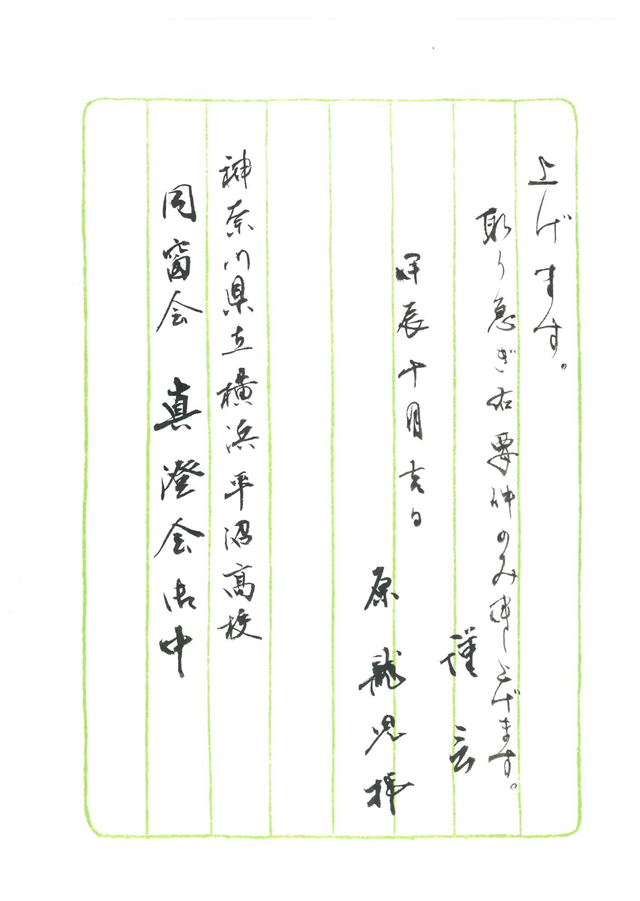 上げます。
取り急ぎ右要件のみ申し上げます。
謹言
甲辰十月吉日
原龍児拝
神奈川県立横浜平沼高校
同窓会 真澄会御中